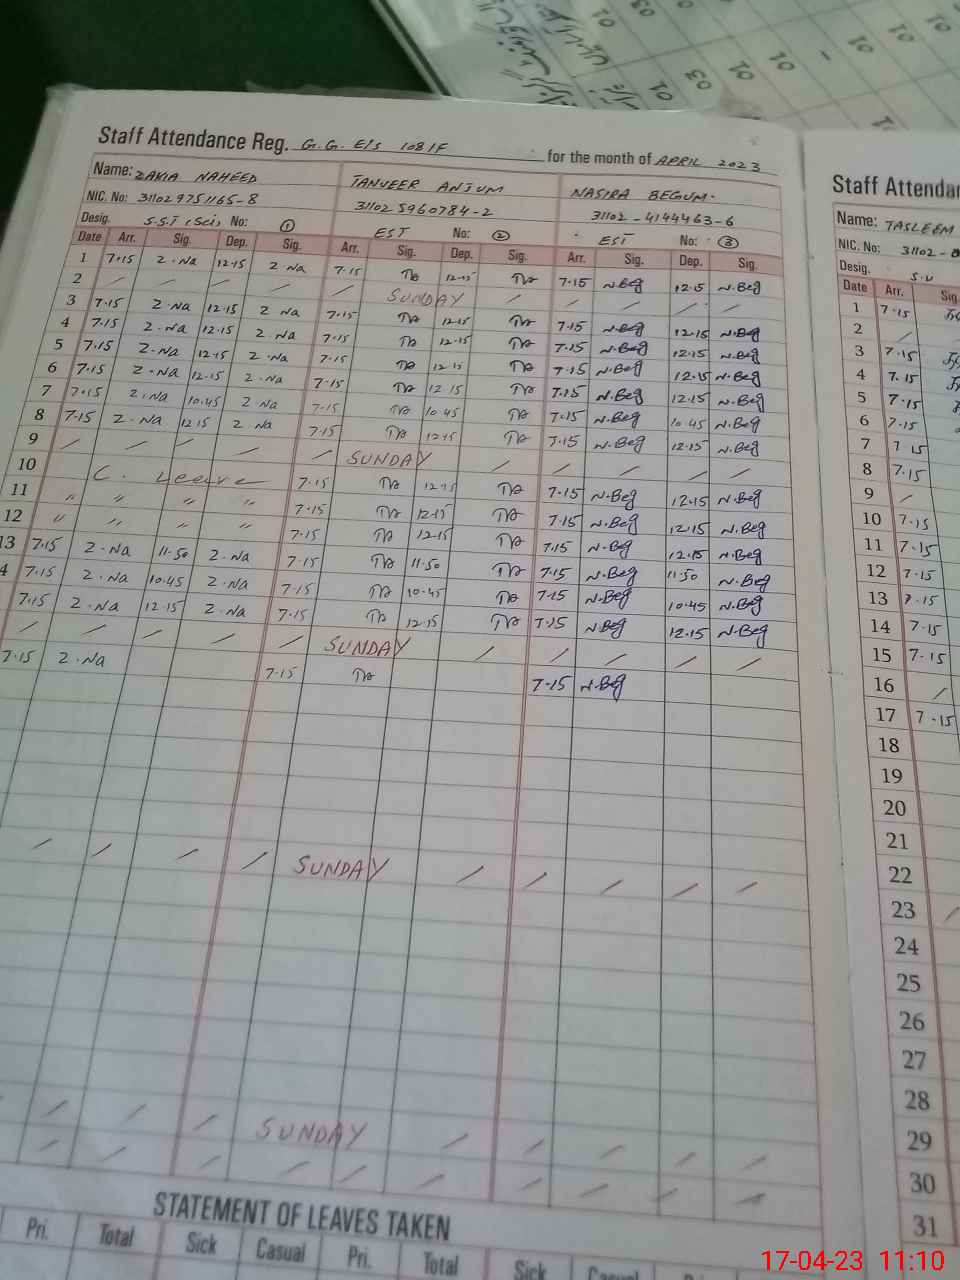 Staff Attendance Reg. G.G. E/S 108/F for the month of APRIL 2023
Name: ZAKIA NAHEED TANVEER ANJUM NASIRA BEGUM.
NIC. No: 31102 9751165-8 31102 5960784-2 31102-4144463-6
Desig. S.ST (Sci) No: 1 EST No: 2 EST No: 3
Date Arr. Sig. Dep. Sig. Arr. Sig. Dep. Sig. Arr. Sig. Dep. Sig.
1 7.15 Z.Na 12.15 Z Na 7.15 TA 12.15 TA 7.15 N.Beg 12.5 N.Beg
2 / / / / / SUNDAY / / / / /
3 7.15 Z.Na 12.15 Z Na 7.15 TA 12.15 TA 7.15 N.Beg 12.15 N.Beg
4 7.15 Z.Na 12.15 Z Na 7.15 TA 12.15 TA 7.15 N.Beg 12.15 N.Beg
5 7.15 Z.Na 12.15 Z.Na 7.15 TA 12.15 TA 7.15 N.Beg 12.15 N.Beg
6 7.15 Z.Na 12.15 Z.Na 7.15 TA 12.15 TA 7.15 N.Beg 12.15 N.Beg
7 7.15 Z.Na 10.45 Z.Na 7.15 TA 10.45 TA 7.15 N.Beg 10.45 N.Beg
8 7.15 Z.Na 12.15 Z Na 7.15 TA 12.15 TA 7.15 N.Beg 12.15 N.Beg
9 / / / / / SUNDAY / / / / /
10 C. Leave 7.15 TA 12.15 TA 7.15 N.Beg 12.15 N.Beg
11 " " " " 7.15 TA 12.15 TA 7.15 N.Beg 12.15 N.Beg
12 " " " " 7.15 TA 12.15 TA 7.15 N.Beg 12.15 N.Beg
13 7.15 Z.Na 11.50 Z.Na 7.15 TA 11.50 TA 7.15 N.Beg 11.50 N.Beg
4 7.15 Z.Na 10.45 Z.Na 7.15 TA 10.45 TA 7.15 N.Beg 10.45 N.Beg
7.15 Z.Na 12.15 Z.Na 7.15 TA 12.15 TA 7.15 N.Beg 12.15 N.Beg
/ / / / / SUNDAY / / / / /
7.15 Z.Na 7.15 TA 7.15 N.Beg
/ / / / SUNDAY / / / / /
/ / / SUNDAY / / / / /
/ / / / / / / / / /
STATEMENT OF LEAVES TAKEN
Pri. Total Sick Casual Pri. Total Sick Casual
Staff Attendan
Name: TASLEEM
NIC. No: 31102-
Desig. S.V
Date Arr. Sig
1 7.15
2 /
3 7.15
4 7.15
5 7.15
6 7.15
7 7 15
8 7.15
9 /
10 7.15
11 7.15
12 7.15
13 7.15
14 7.15
15 7.15
16 /
17 7.15
18
19
20
21
22
23 /
24
25
26
27
28
29
30
31
17-04-23 11:10